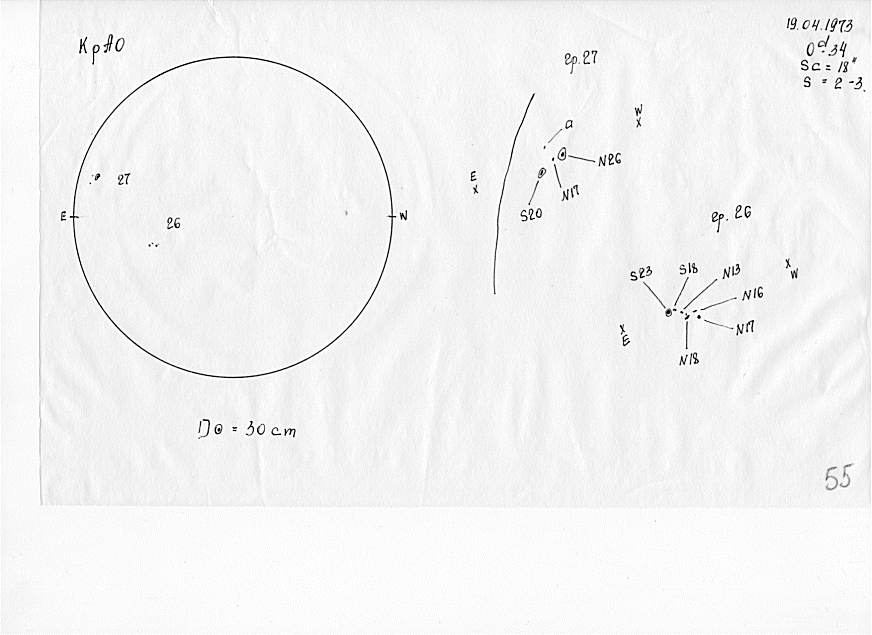 КрАО
19.04.1973
0ᵈ.34
Sc = 18"
S = 2-3.
27
E
W
26
D⊙ = 30 cm
гр. 27
W
x
a
N26
E
x
N17
S20
гр. 26
x
W
S23
S18
N13
N16
N17
x
E
N18
55